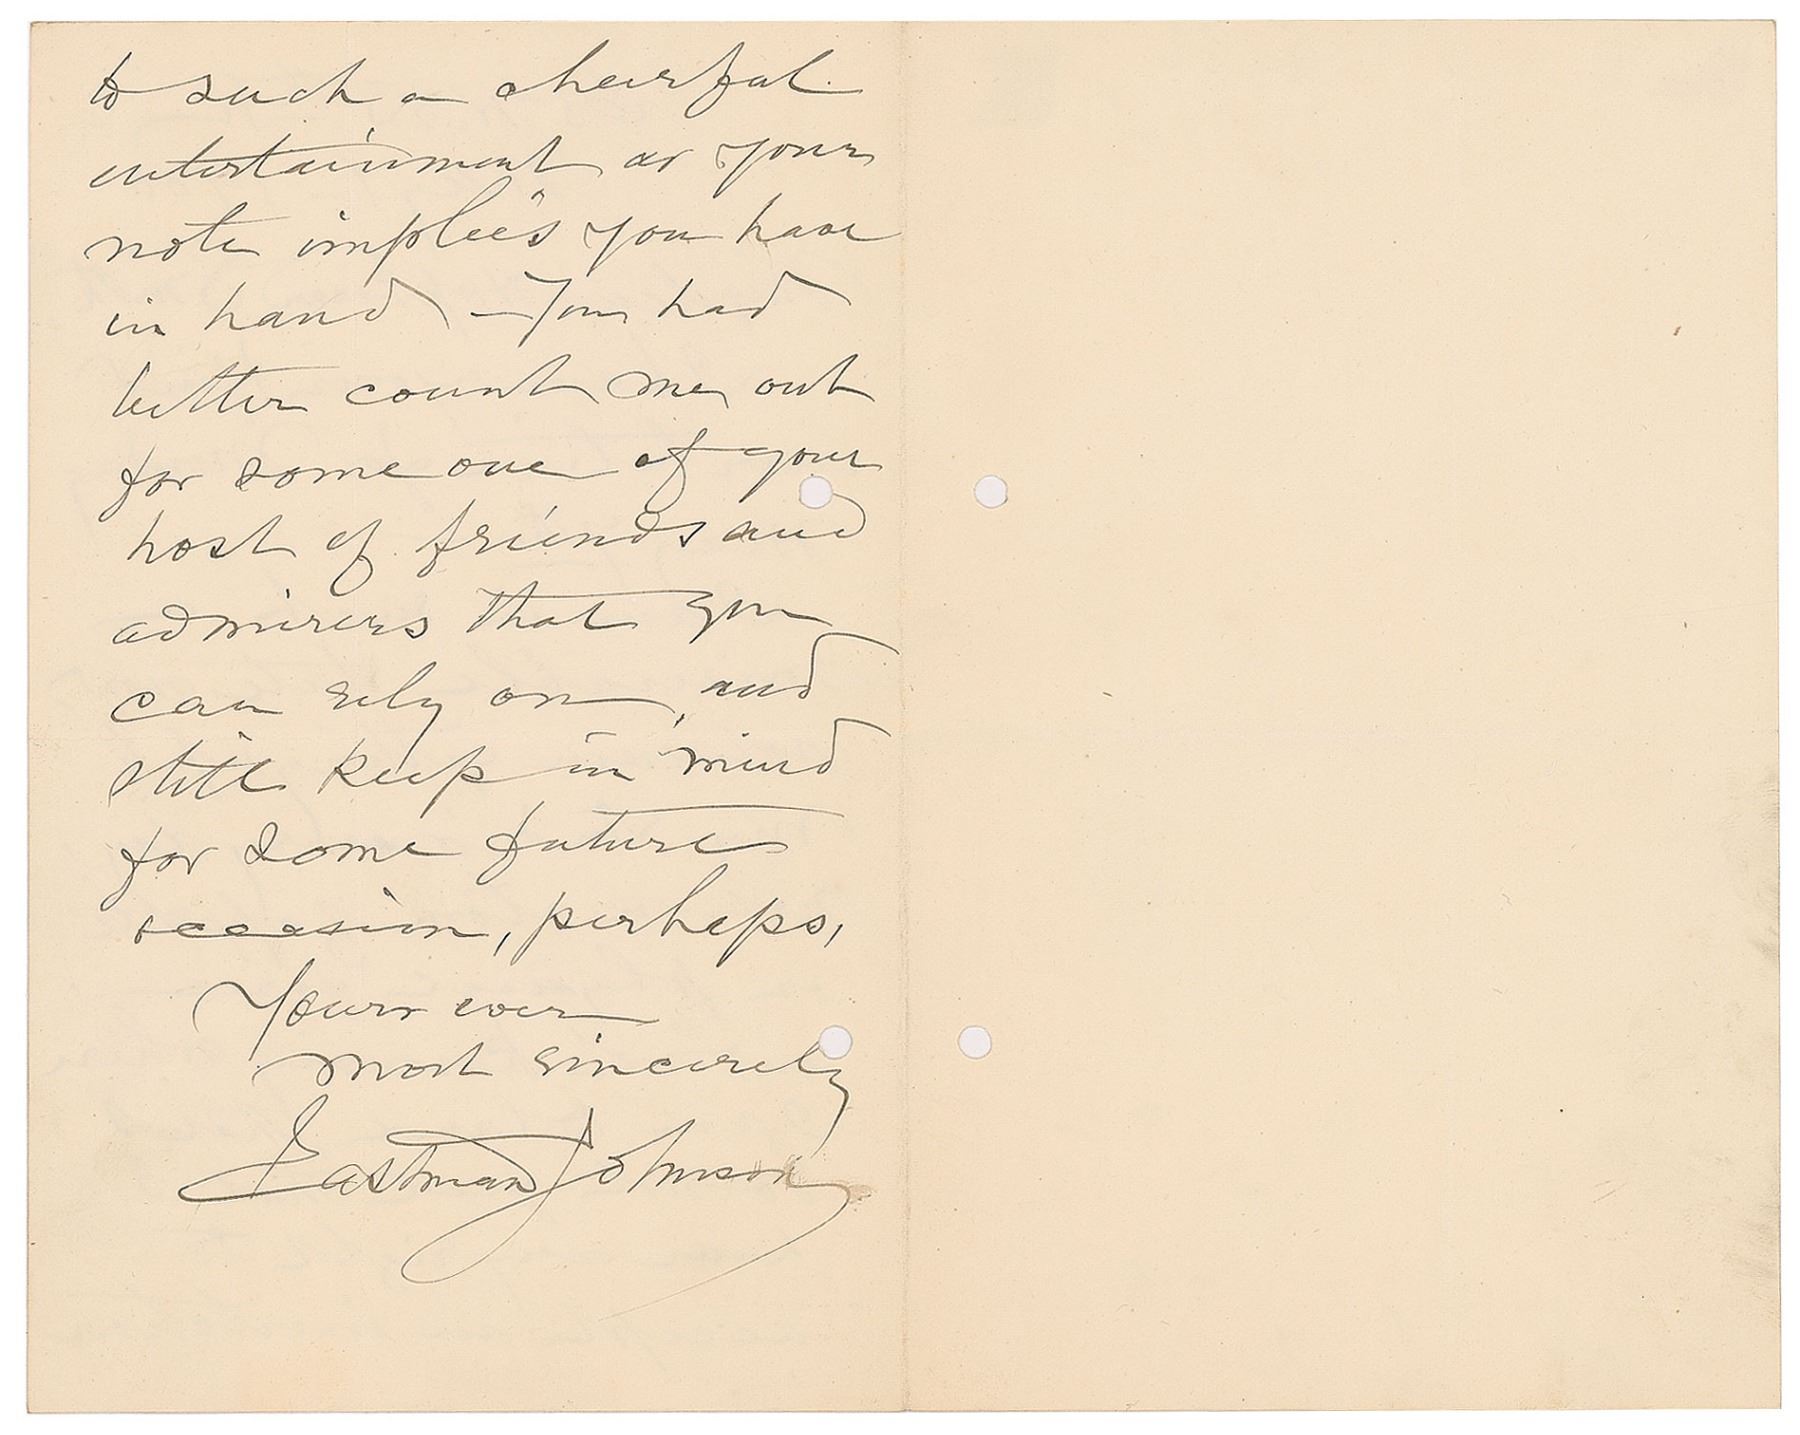 to such a cheerful
entertainment as your
note implies you have
in hand — You had
better count me out
for some one of your
host of friends and
admirers that you
can rely on, and
still keep in mind
for some future
occasion, perhaps,
Yours ever
most sincerely
Eastman Johnson